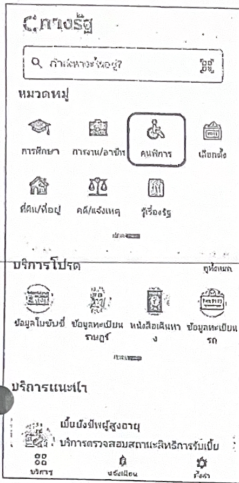 ทางรัฐ
กำลังหาอะไรอยู่?
หมวดหมู่
การศึกษา การงาน/อาชีพ คนพิการ เลือกตั้ง
ที่ดิน/ที่อยู่ คดี/แจ้งเหตุ รู้เรื่องรัฐ
บริการโปรด ดูทั้งหมด
ข้อมูลใบขับขี่ ข้อมูลทะเบียน หนังสือเดินทา ข้อมูลทะเบียน
ราษฎร์ ง รถ
บริการแนะนำ
เบี้ยยังชีพผู้สูงอายุ
บริการตรวจสอบสถานะสิทธิการรับเบี้ย
บริการ แจ้งเตือน ตั้งค่า